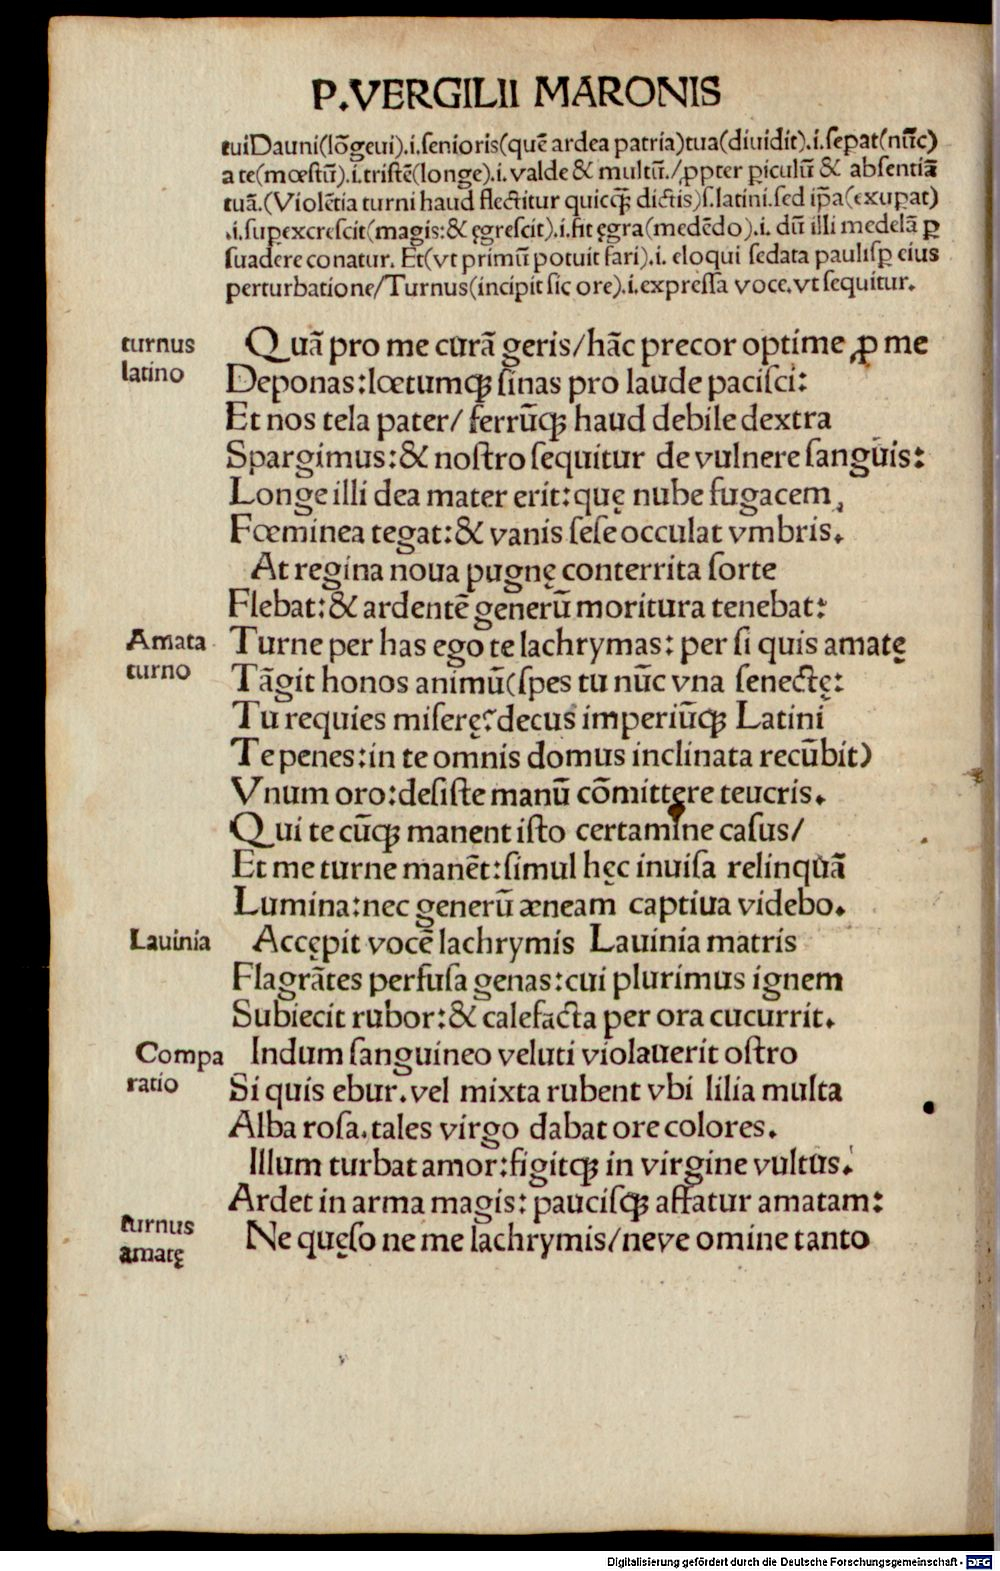 P.VERGILII MARONIS
tuiDauni(lōgeui).i.senioris(quē ardea patria)tua(diuidit).i.sep̱at(nūc)
a te(mœstū).i.tristē(longe).i.valde & multū./ꝓpter ꝑiculū & absentiā
tuā.(Violētia turni haud flectitur quicꝗ̄ dictis)s.latini.sed ip̄a(exuꝑat)
.i.suꝑexcrescit(magis:& ęgrescit).i.fit ęgra(medēdo).i. dū illi medelā ꝑ
suadere conatur. Et(vt primū potuit fari).i. eloqui sedata paulisꝑ eius
perturbatione/Turnus(incipit sic ore).i.expressa voce.vt sequitur.
turnus
latino
Quā pro me curā geris/hāc precor optime ꝓ me
Deponas:lœtumqꝫ sinas pro laude pacisci:
Et nos tela pater/ ferrūqꝫ haud debile dextra
Spargimus:& nostro sequitur de vulnere sanguis:
Longe illi dea mater erit:quę nube fugacem
Fœminea tegat:& vanis sese occulat vmbris.
At regina noua pugnę conterrita sorte
Flebat:& ardentē generū moritura tenebat:
Amata
turno
Turne per has ego te lachrymas: per si quis amatę
Tāgit honos animū(spes tu nūc vna senectę:
Tu requies miserę:decus imperiūqꝫ Latini
Te penes:in te omnis domus inclinata recūbit)
Vnum oro:desiste manū cōmittere teucris.
Qui te cūqꝫ manent isto certamine casus/
Et me turne manēt:simul hęc inuisa relinquā
Lumina:nec generū æneam captiua videbo.
Lauinia
Accępit vocē lachrymis Lauinia matris
Flagrātes perfusa genas:cui plurimus ignem
Subiecit rubor:& calefacta per ora cucurrit.
Compa
ratio
Indum sanguineo veluti violauerit ostro
Si quis ebur.vel mixta rubent vbi lilia multa
Alba rosa.tales virgo dabat ore colores.
Illum turbat amor:figitqꝫ in virgine vultus.
Ardet in arma magis: paucisqꝫ affatur amatam:
turnus
amatę
Ne quęso ne me lachrymis/neve omine tanto
Digitalisierung gefördert durch die Deutsche Forschungsgemeinschaft - DFG